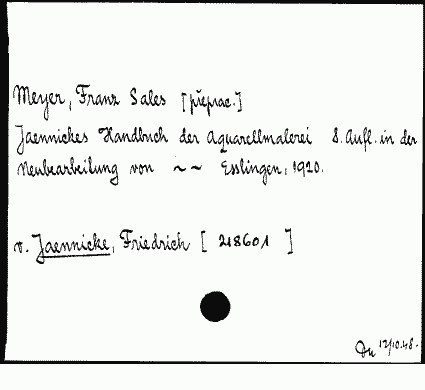 Meyer, Franz Sales [přeprac.]
Jaennickes Handbuch der Aquarellmalerei 8. Aufl. in der
Neubearbeitung von ~ ~ Esslingen, 1920.
v. Jaennicke, Friedrich [ 218601 ]
Du 12/10.48.